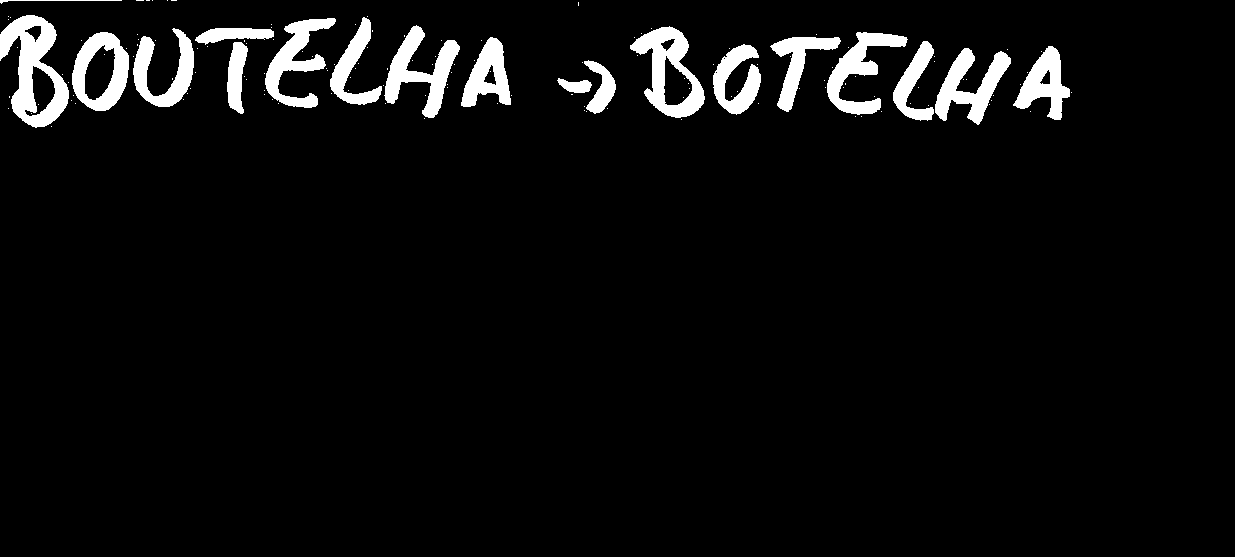 BOUTELHA → BOTELHA